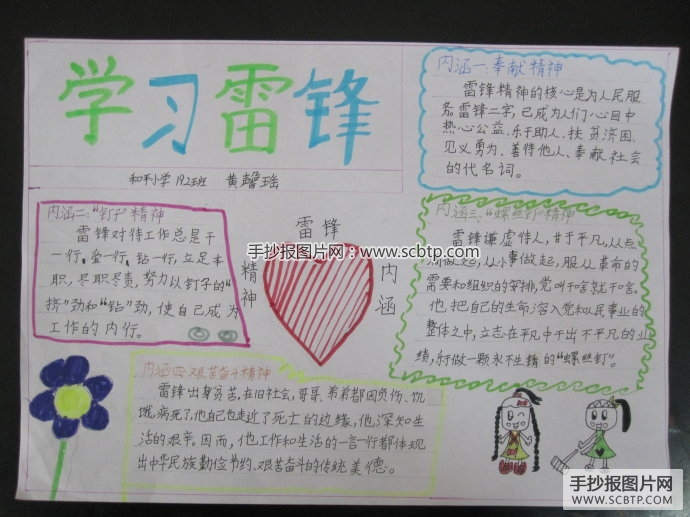 学习雷锋
和平小学 192班 黄馨瑶
内涵一：奉献精神
雷锋精神的核心是为人民服
务.雷锋二字，已成为人们心目中
热心公益、乐于助人、扶贫济困、
见义勇为、善待他人、奉献社会
的代名词。
内涵二："钉子"精神
雷锋对待工作总是干
一行、爱一行、钻一行，立足本
职，尽职尽责，努力以钉子的"
挤"劲和"钻"劲，使自己成为
工作的内行。
雷锋
精神
内涵
手抄报图片网-www.scbtp.com
内涵三："螺丝钉"精神
雷锋谦虚待人，甘于平凡，从点
滴做起，从小事做起，服从革命的
需要和组织的安排，党叫干啥就干啥。
他把自己的生命溶入党和人民事业的
整体之中，立志在平凡中干出不平凡的业
绩，争做一颗永不生锈的"螺丝钉"。
内涵四：艰苦奋斗精神
雷锋出身贫苦，在旧社会，哥哥、弟弟都因负伤、饥
饿、病死了，他自己也走近了死亡的边缘，他，深知生
活的艰辛。因而，他工作和生活的一言一行都体现
出中华民族勤俭节约、艰苦奋斗的传统美德。
手抄报图片网
WWW.SCBTP.COM